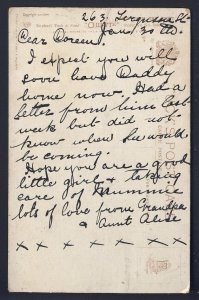 263. Ferguson St.
Jan. 30th
Dear Doreen,
I expect you will
soon have Daddy
home now. Had a
letter from him last
week but did not
know when he would
be coming.
Hope you are a good
little girl & taking
care of Mummie
lots of love from Grandpa
& Aunt Alice
x x x x x x x